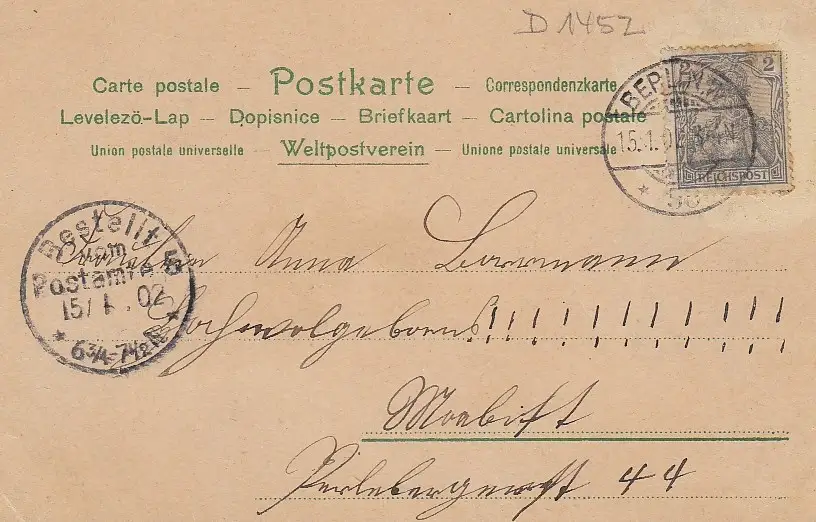 D 1452
Carte postale – Postkarte – Correspondenzkarte
Levelezö-Lap – Dopisnice – Briefkaart – Cartolina postale
Union postale universelle – Weltpostverein – Unione postale universale
2
REICHSPOST
BERLIN
15.1.02
Bestellt
vom
Postamte 5
15/1.02
6¾-7½N
Fräulein Anna Borrmann
Hochwolgeboren!!!!!!!!!!!!!!
Moabitt
Perlebergerst 44